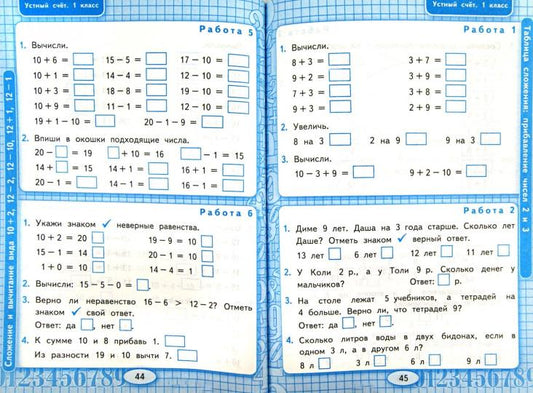 Устный счёт. 1 класс
Работа 5
1. Вычисли.
10 + 6 = 15 – 5 = 17 – 10 =
10 + 2 = 14 – 4 = 13 – 10 =
10 + 3 = 18 – 8 = 14 – 10 =
10 + 9 = 11 – 1 = 12 – 10 =
19 + 1 – 10 = 20 – 1 – 9 =
2. Впиши в окошки подходящие числа.
20 – = 19 + 10 = 16 – 1 = 15
14 + = 15 14 + 1 = 16 + 1 =
20 – 1 = 14 – 1 = 16 – 1 =
Работа 6
1. Укажи знаком ✓ неверные равенства.
10 + 2 = 20 19 – 9 = 10
15 – 1 = 14 20 – 1 = 10
1 + 0 = 10 14 – 4 = 1
2. Вычисли: 15 – 5 – 0 =
3. Верно ли неравенство 16 – 6 > 12 – 2? Отметь
знаком ✓ свой ответ.
Ответ: да , нет .
4. К сумме 10 и 8 прибавь 1.
Из разности 19 и 10 вычти 7.
Сложение и вычитание вида 10 + 2, 12 – 2, 12 – 10, 12 + 1, 12 – 1
0123456789
44
Устный счёт. 1 класс
Работа 1
1. Вычисли.
8 + 3 = 3 + 7 =
9 + 2 = 3 + 9 =
7 + 3 = 3 + 8 =
9 + 3 = 2 + 9 =
2. Увеличь.
8 на 3 2 на 9 9 на 3
3. Вычисли.
10 – 3 + 9 = 9 – 6 + 8 =
Работа 2
1. Диме 9 лет. Даша на 3 года старше. Сколько лет
Даше? Отметь знаком ✓ верный ответ.
13 лет 6 лет 12 лет 11 лет
2. У Коли 2 р., а у Толи 9 р. Сколько денег у
мальчиков? Ответ: р.
3. На столе лежат 5 учебников, а тетрадей на
4 больше. Верно ли, что тетрадей 9?
Ответ: да , нет .
4. Сколько литров воды в двух бидонах, если в
одном 3 л, а в другом 6 л?
8 л 3 л 6 л 9 л
Таблица сложения: прибавление чисел 2 и 3
45
0123456789